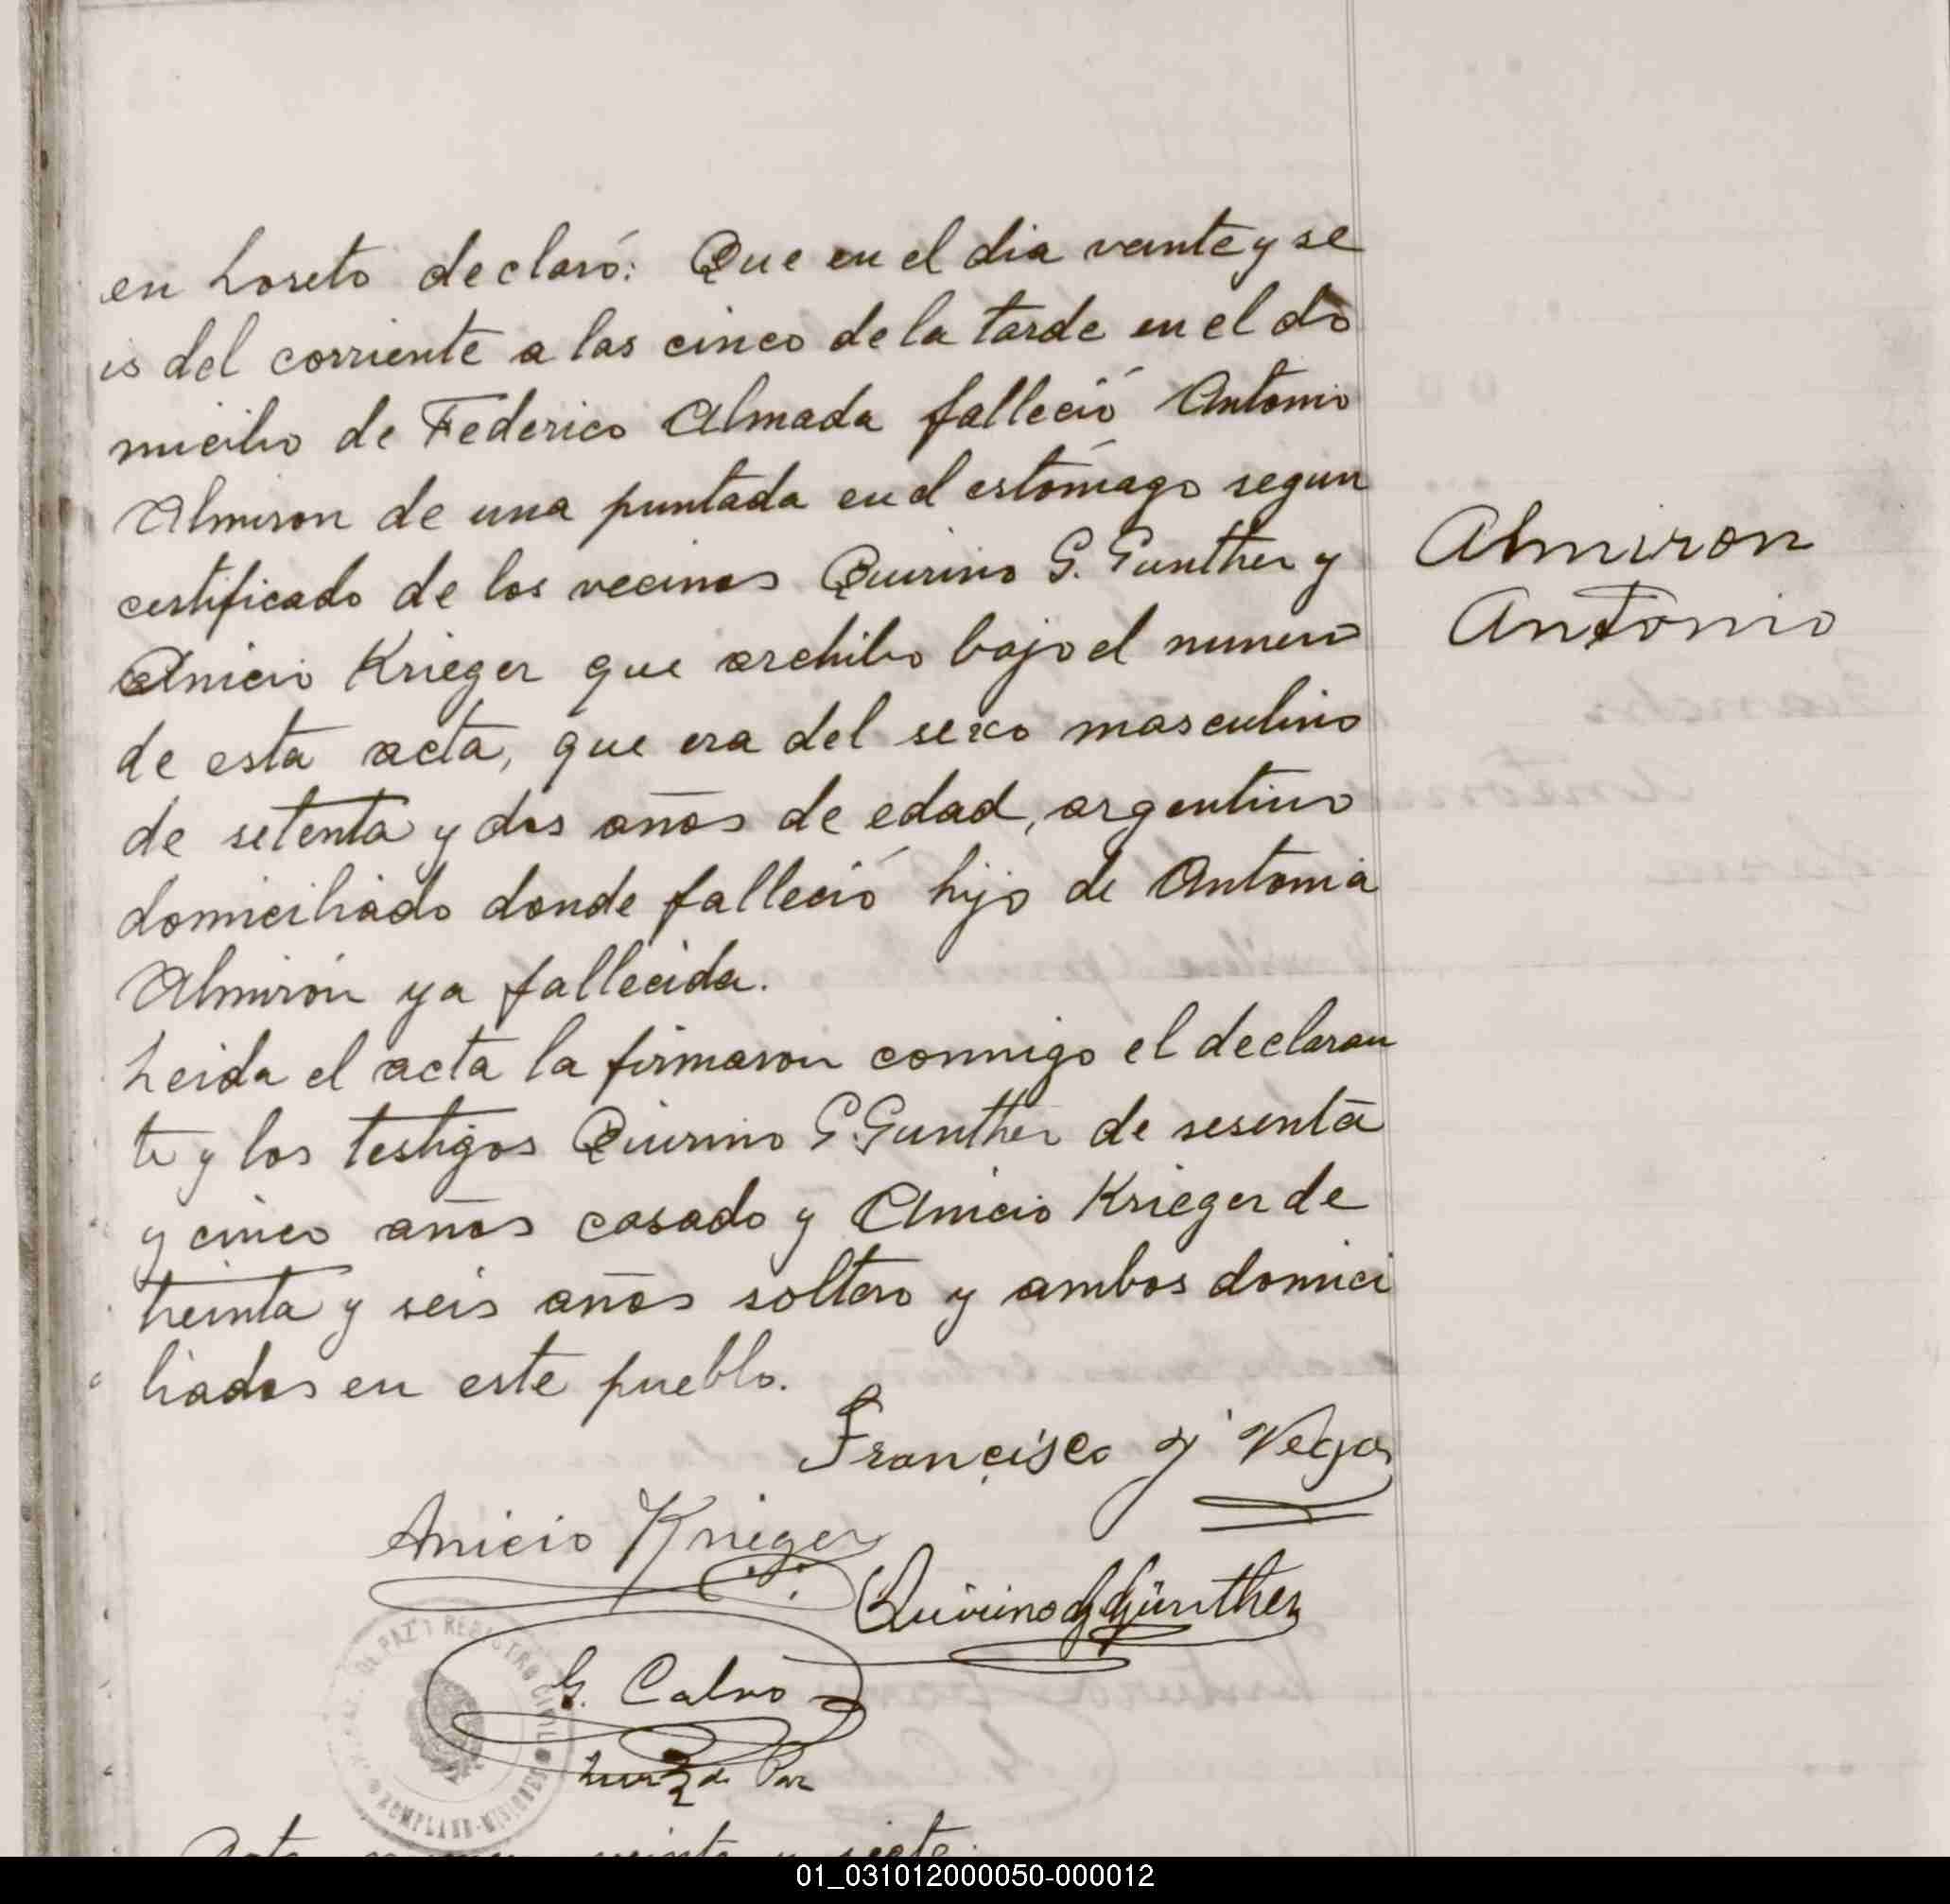 en Loreto declaró: Que en el dia veinte y se
is del corriente a las cinco de la tarde en el do
micilio de Federico Almada falleció Antonio
Almiron de una puntada en el estómago segun
certificado de los vecinos Quirino G. Gunther y
Anicio Krieger que archibo bajo el numero
de esta acta, que era del sexo masculino
de setenta y dos años de edad, argentino
domiciliado donde falleció hijo de Antonia
Almirón ya fallecida.
Leida el acta la firmaron conmigo el declaran
te y los testigos Quirino G. Gunther de sesenta
y cinco años casado y Anicio Krieger de
treinta y seis años soltero y ambos domici
liados en este pueblo.
Almiron
Antonio
Francisco J Vega
Anicio Krieger
Quirino G Günther
G. Calvo
Juez de Paz
DE PAZ Y REGISTRO CIVIL
MISIONES
Acta veinte y siete.
01_031012000050-000012